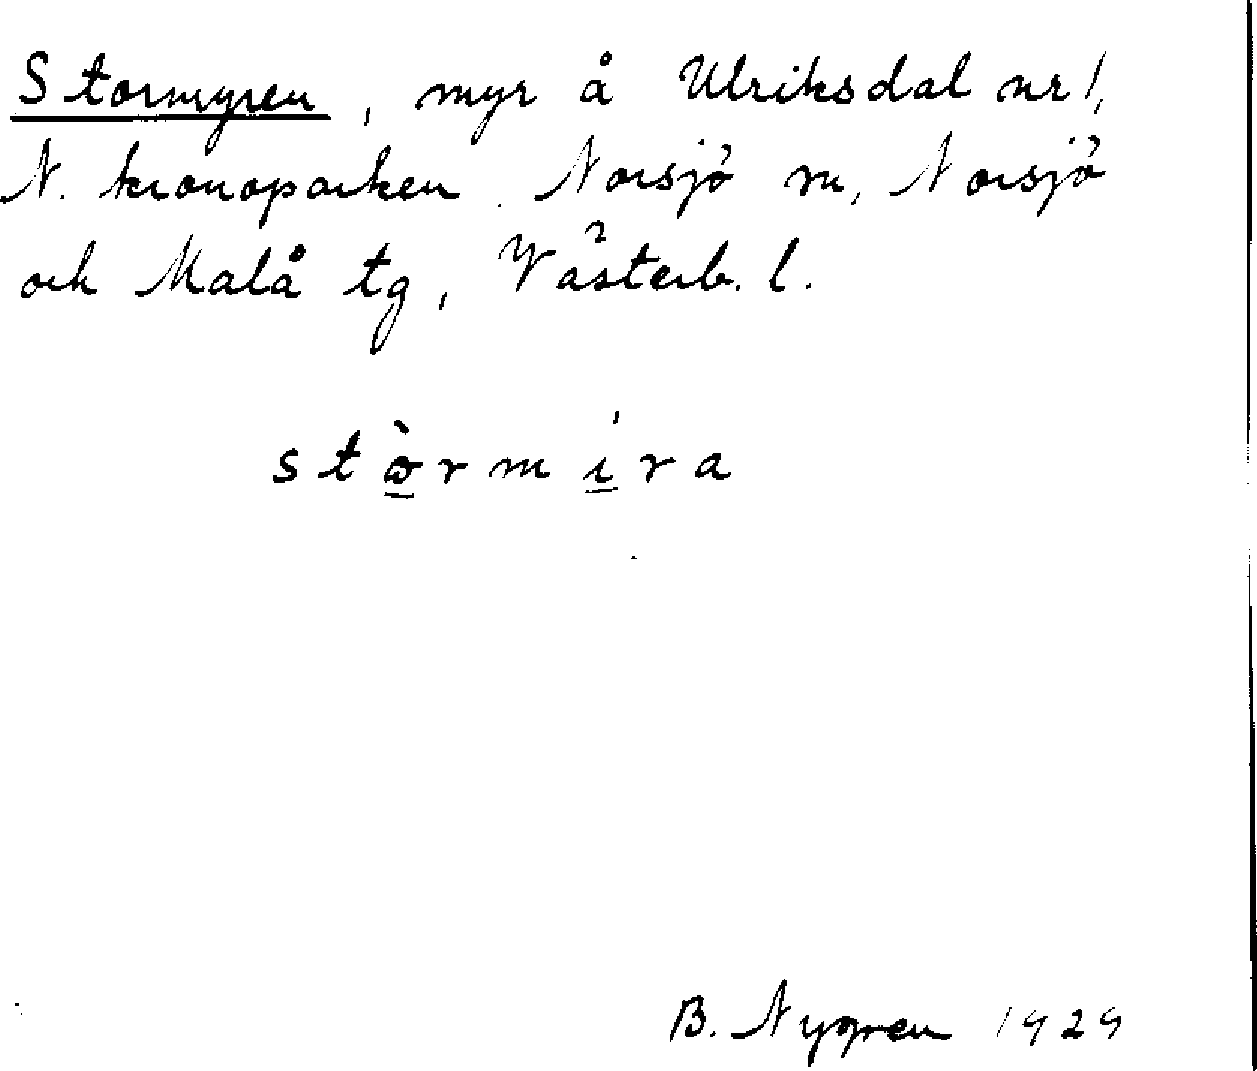 Stormyren, myr å Ulriksdal nr 1,
N. kronoparken. Norsjö sn, Norsjö
och Malå tg, Västerb. l.
stòrmíra
B. Nygren 1929